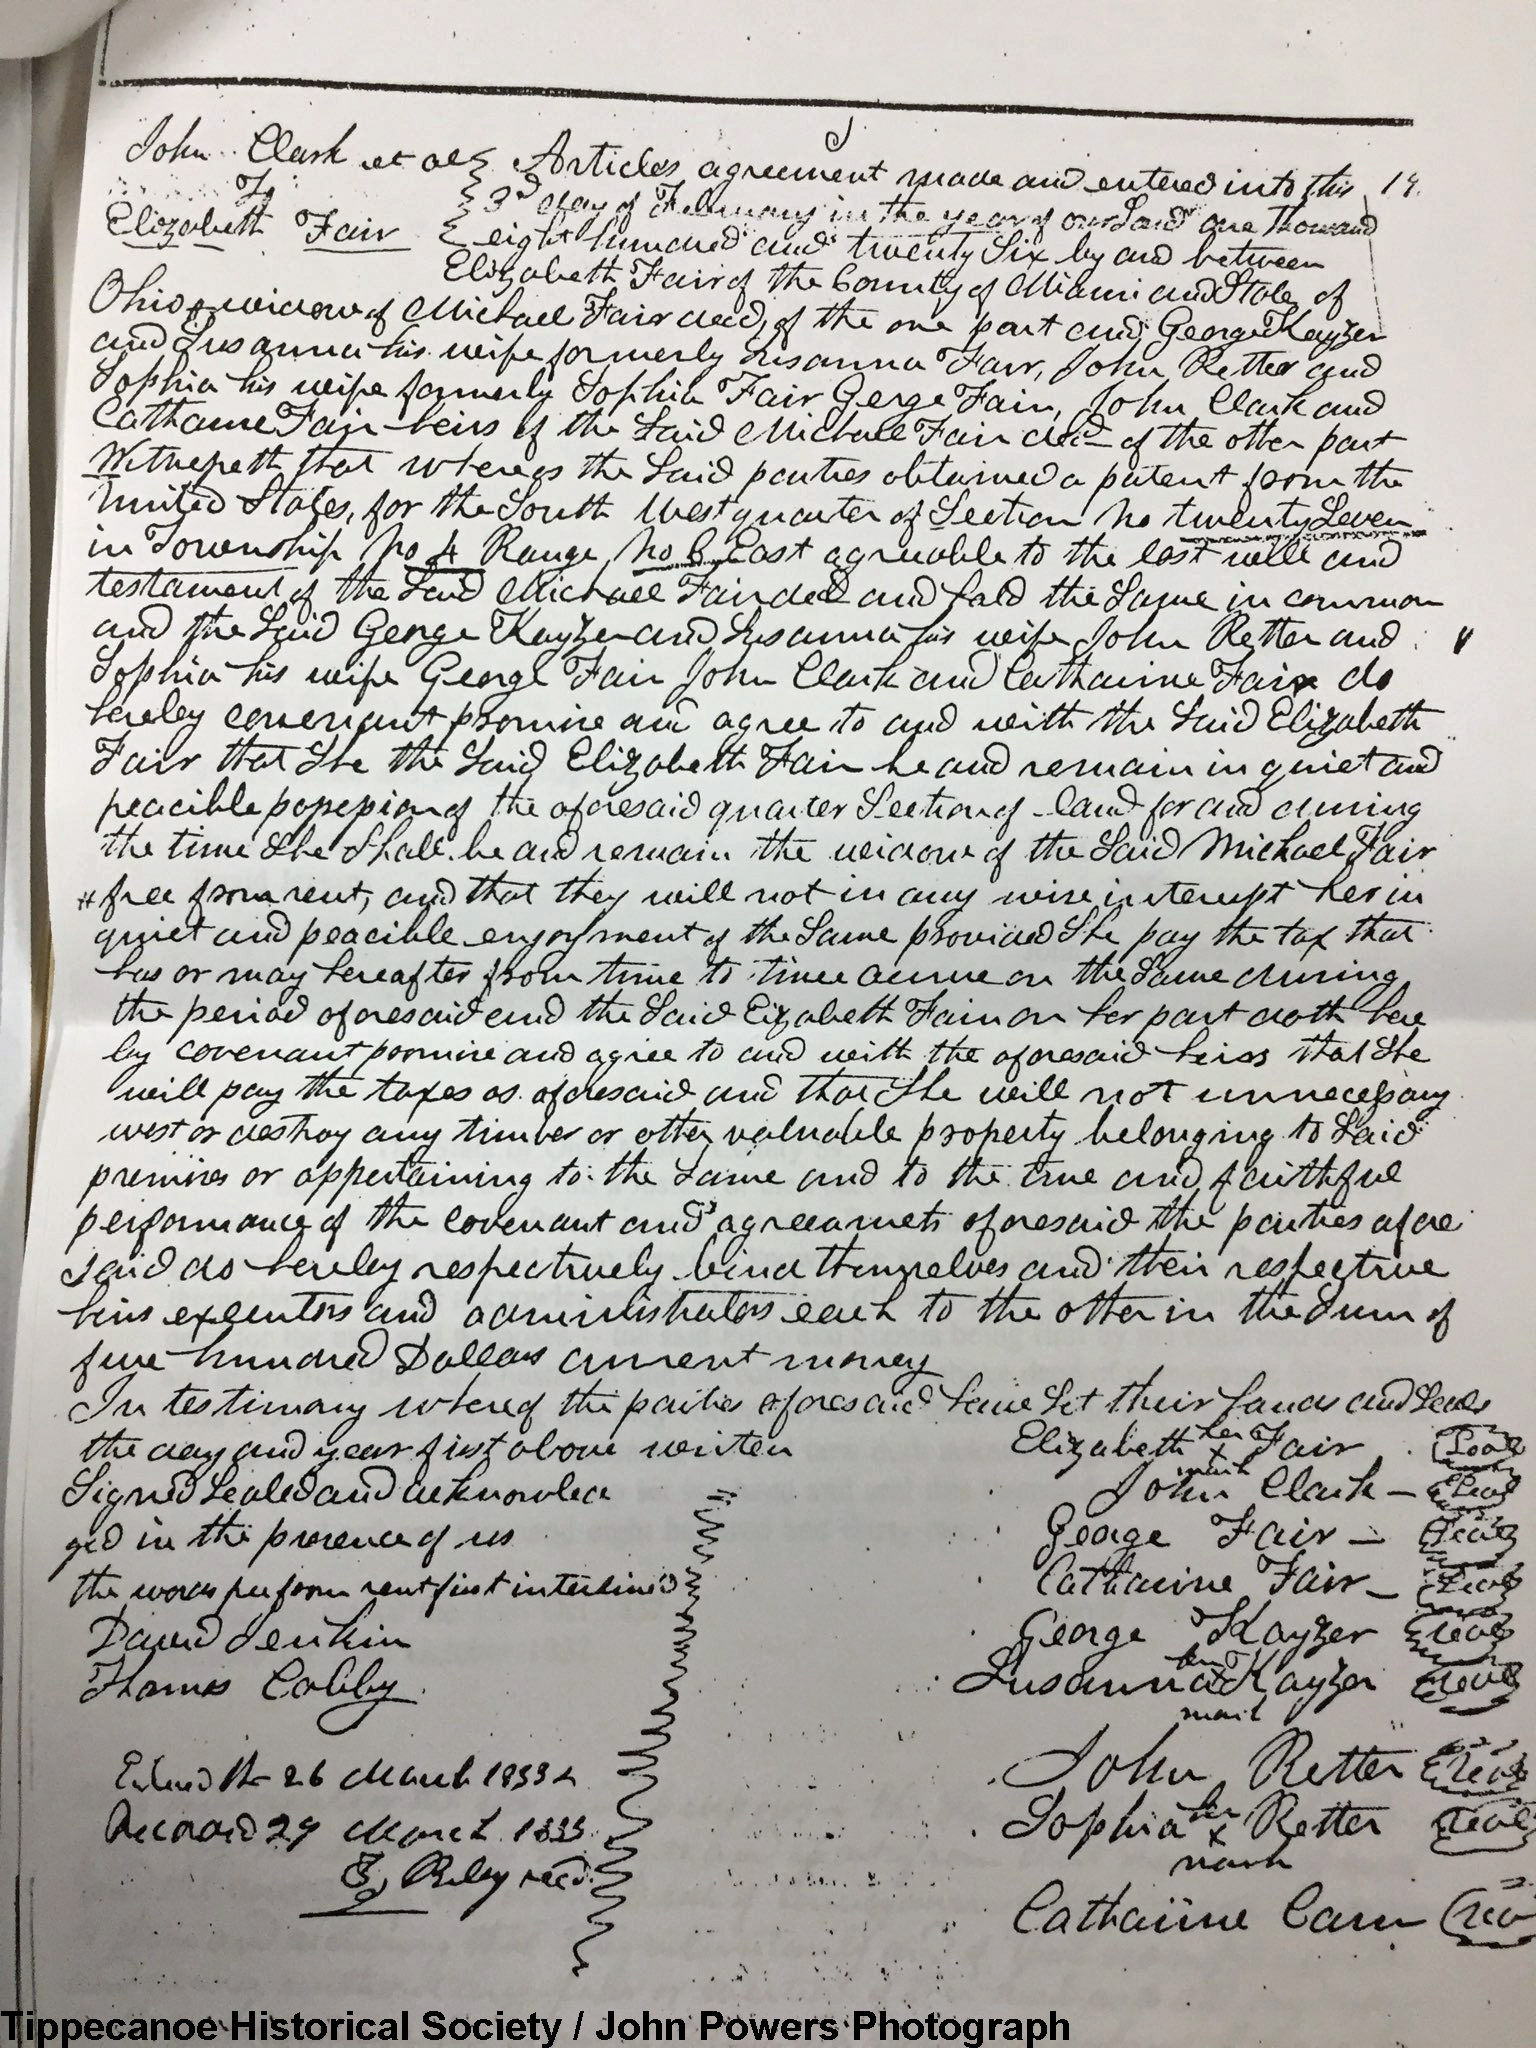 John Clark et al Articles agreement made and entered into this 19.
To 3d day of February in the year of our Lord one thousand
Elizabeth Fair eight hundred and twenty Six by and between
Elizabeth Fair of the County of Miami and State of
Ohio widow of Michael Fair decd, of the one part and George Kayzer
and Susanna his wife formerly Susanna Fair, John Retter and
Sophia his wife formerly Sophia Fair Gerge Fair, John Clark and
Catharine Fair heirs of the Said Michael Fair decd of the other part
Witnesseth that whereas the Said parties obtained a patent from the
United States, for the South West quarter of Section No twenty Seven
in Township No 4 Range No 6 East agreable to the last will and
testament of the Said Michael Fair decd and hald the Same in common
and the Said George Kayzer and Susanna his wife John Retter and
Sophia his wife George Fair John Clark and Catharine Fair do
hereby covenant promise and agree to and with the Said Elizabeth
Fair that She the Said Elizabeth Fair be and remain in quiet and
peacible possession of the aforesaid quarter Section of land for and during
the time She Shall be and remain the widow of the Said Michael Fair
# free from rent, and that they will not in any wise interupt her in
quiet and peacible enjoyment of the Same provided She pay the tax that
has or may hereafter from time to time acrue on the Same during
the period aforesaid and the Said Elizabeth Fair on her part doth here
by covenant promise and agree to and with the aforesaid heirs that She
will pay the taxes as aforesaid and that She will not unnecessary
west or destroy any timber or other valuable property belonging to Said
premises or appertaining to the Same and to the true and faithful
performance of the covenant and agreamets aforesaid the parties afore
said do hereby respectively bind themselves and their respective
heirs executors and administrators each to the other in the Sum of
five hundred Dollars current money
In testimony whereof the parties aforesaid have Set their hands and Seals
the day and year first above writen Elizabeth her x mark Fair Seal
Signed Sealed and acknowled John Clark – Seal
ged in the presence of us George Fair – Seal
the words free from rent first interlined Catharine Fair – Seal
David Jenkin George Kayzer Seal
Thomas Cobby Susanna her x mark Kayzer Seal
Entered the 26 March 1833 John Retter Seal
Recorded 29 March 1833 Sophia her x mark Retter Seal
Riley recd.
Catharine Seal
Tippecanoe Historical Society / John Powers Photograph